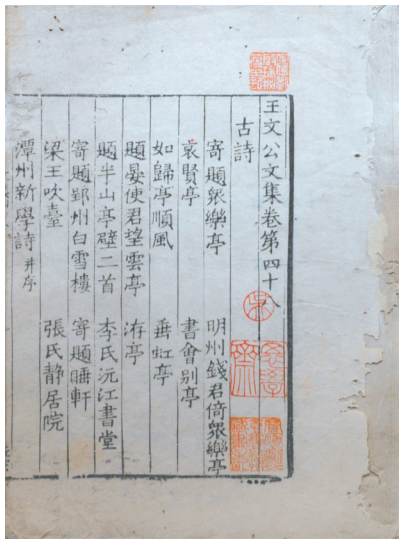 王文公文集卷第四十八
古詩
寄題衆樂亭　明州錢君倚衆樂亭
哀賢亭　書會别亭
如歸亭順風　垂虹亭
題晏使君望雲亭　洊亭
題半山亭壁二首　李氏沅江書堂
寄題郢州白雪樓　寄題睡軒
梁王吹臺　張氏静居院
潭州新學詩并序